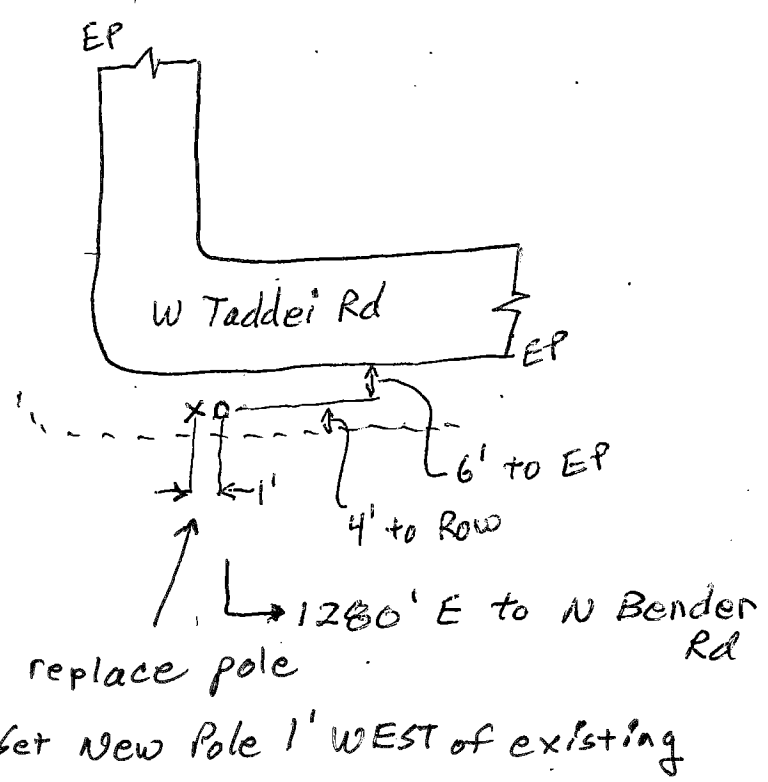 EP
W Taddei Rd
EP
X O
1'
6' to EP
4' to Row
1280' E to N Bender
Rd
replace pole
Set New Pole 1' WEST of existing